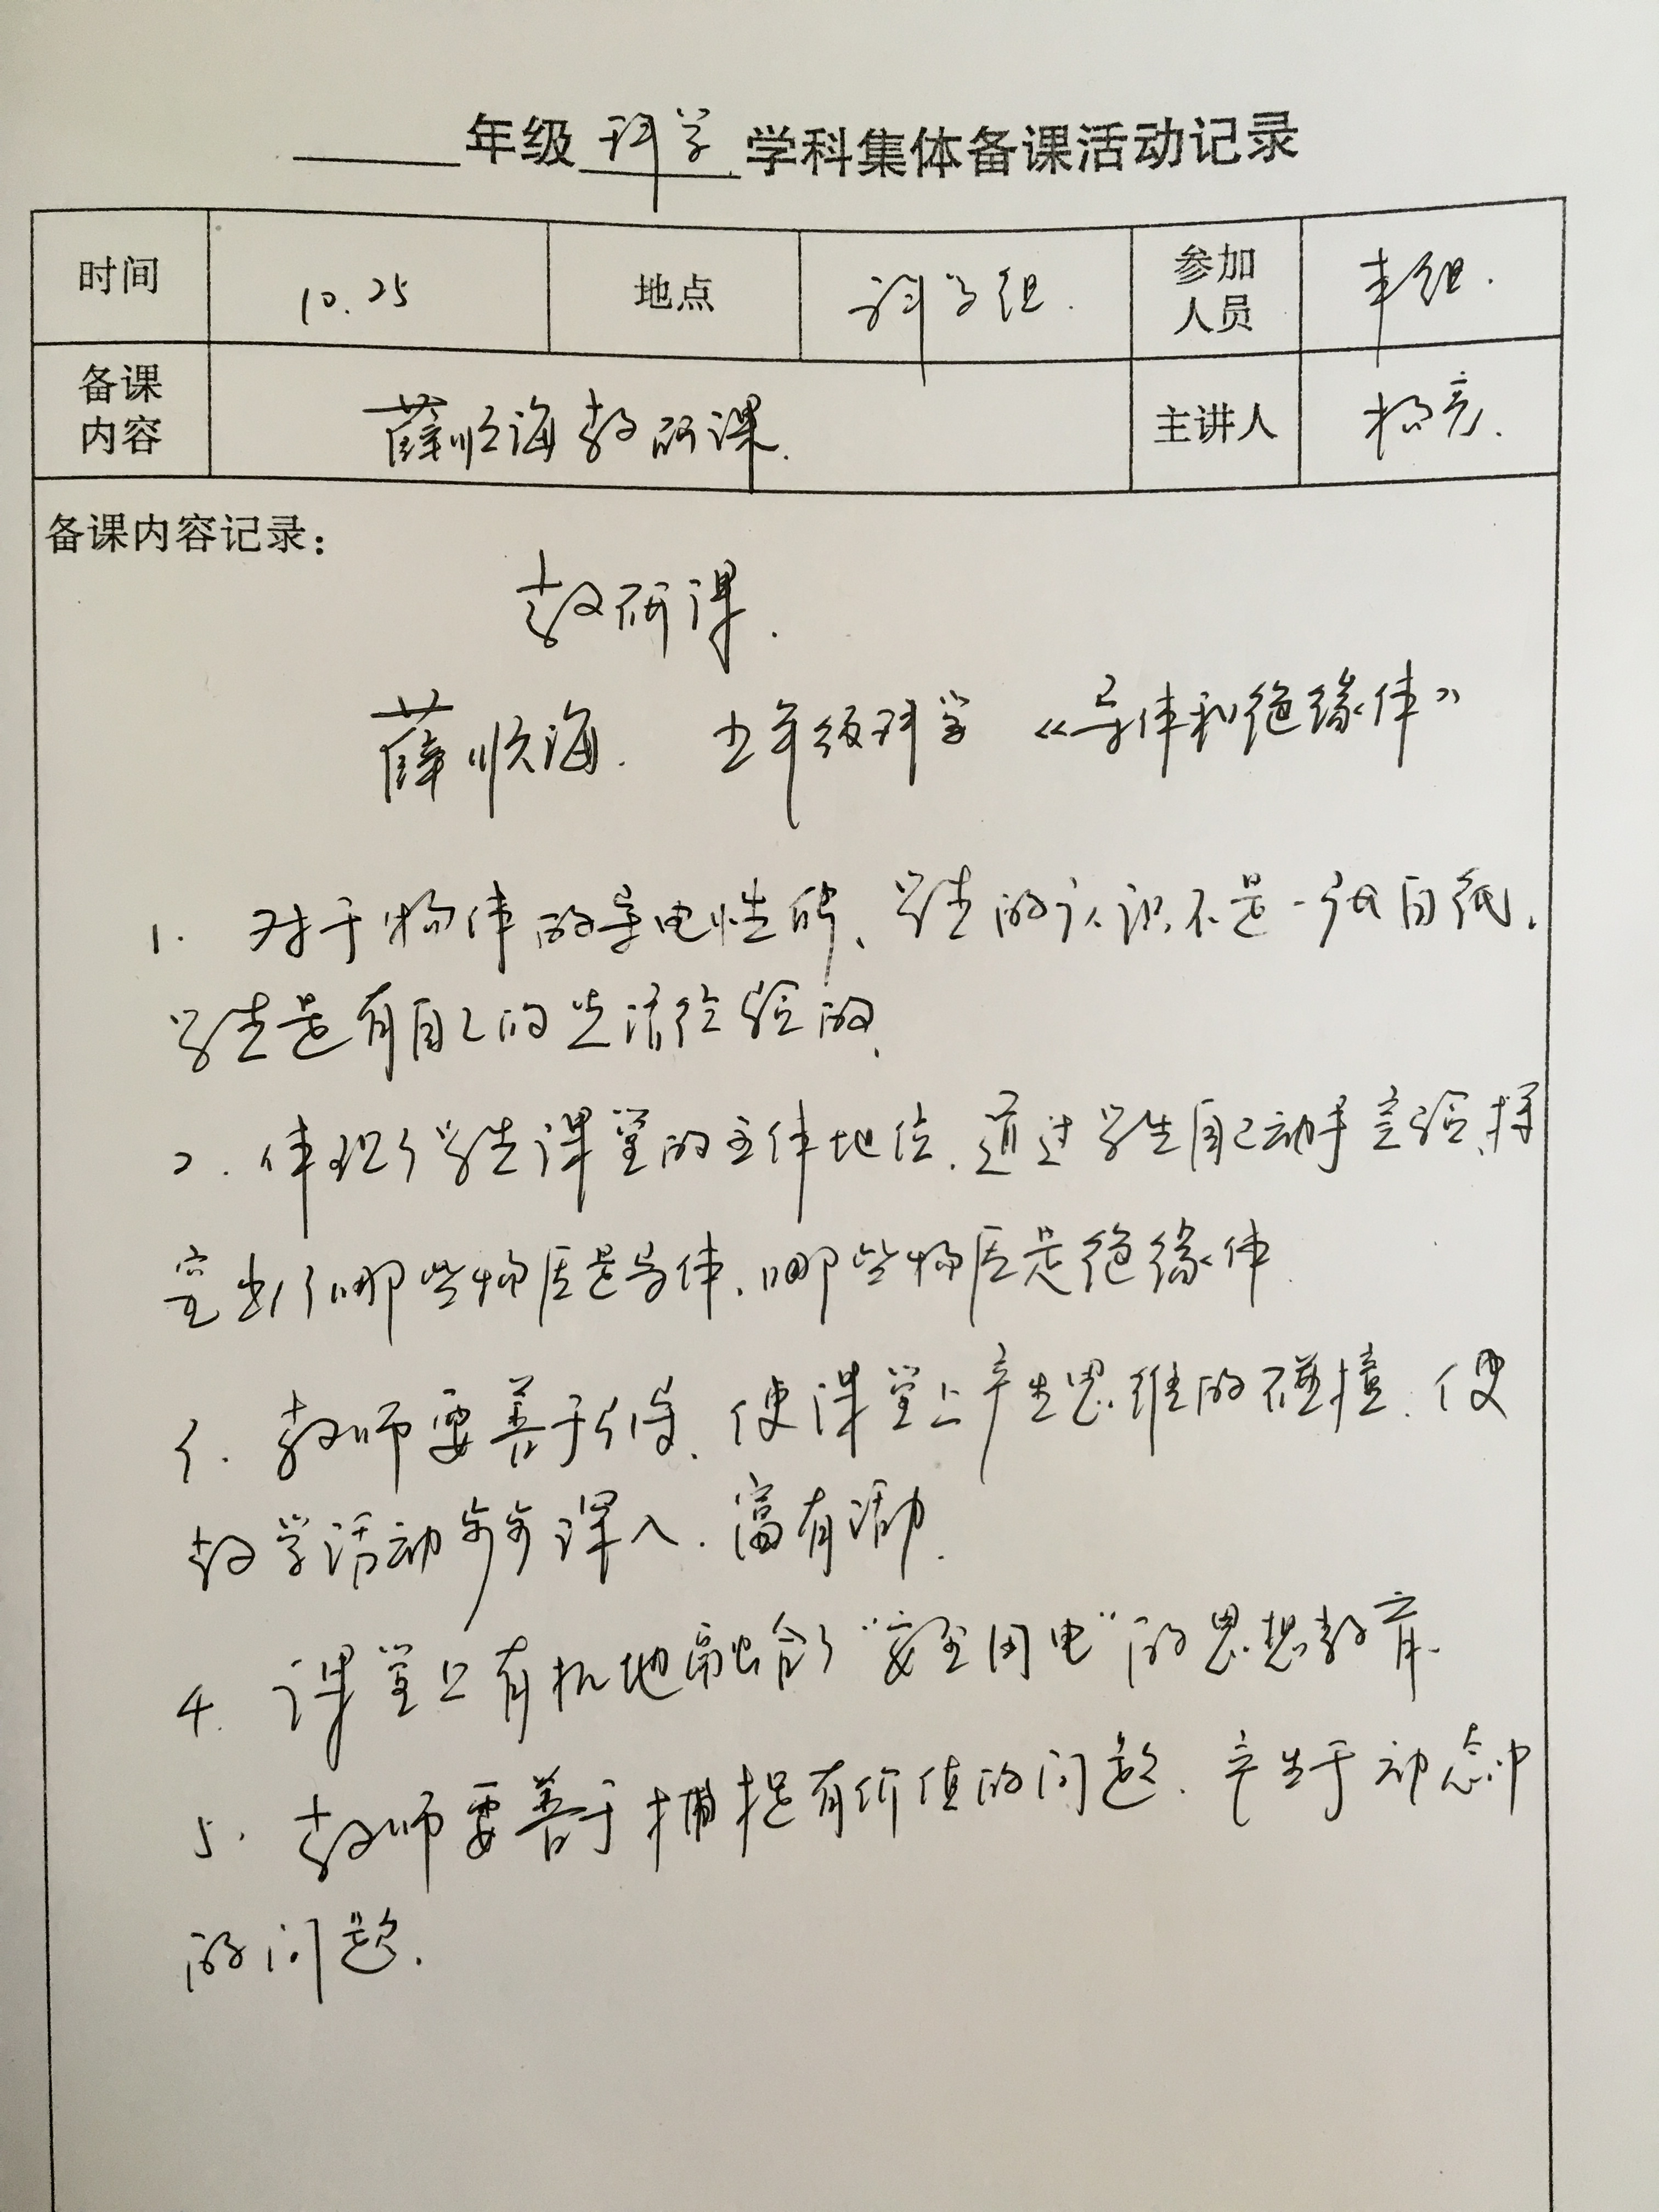 年级 科学 学科集体备课活动记录
时间 10.25 地点 科学组. 参加人员 本组.
备课内容 薛顺海教研课. 主讲人 杨亮.
备课内容记录：
教研课.
薛顺海. 五年级科学 《导体和绝缘体》
1. 对于物体的导电性能、学生的认识不是一张白纸.
学生是有自己的生活经验的.
2. 体现了学生课堂的主体地位.通过学生自己动手实验、探
究出了哪些物质是导体.哪些物质是绝缘体.
教师要善于 . 使课堂上产生思维的碰撞. 使
教学活动步步深入.富有活力.
4. 课堂上有机地融合了“安全用电”的思想教育.
5. 教师要善于捕捉有价值的问题. 产生于动态中
的问题.